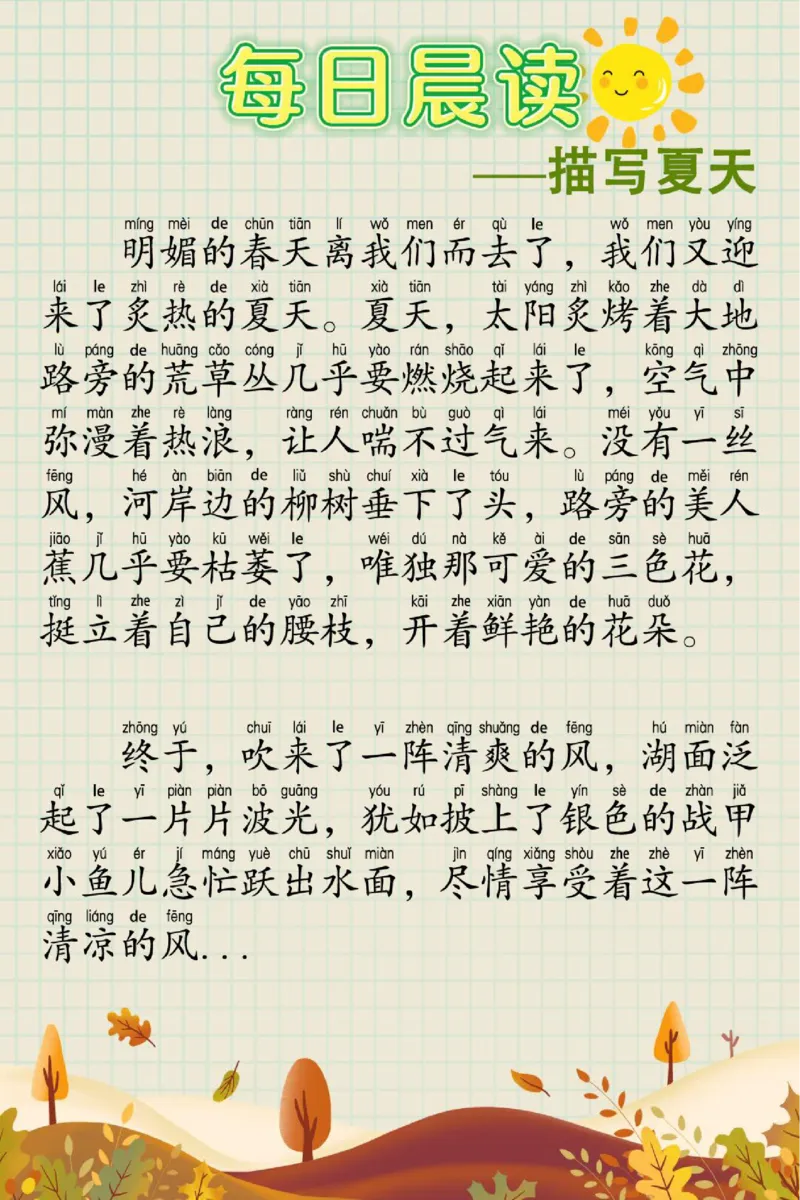 每日晨读
——描写夏天
míng mèi de chūn tiān lí wǒ men ér qù le wǒ men yòu yíng
明媚的春天离我们而去了，我们又迎
lái le zhì rè de xià tiān xià tiān tài yáng zhì kǎo zhe dà dì
来了炙热的夏天。夏天，太阳炙烤着大地
lù páng de huāng cǎo cóng jǐ hū yào rán shāo qǐ lái le kōng qì zhōng
路旁的荒草丛几乎要燃烧起来了，空气中
mí màn zhe rè làng ràng rén chuǎn bù guò qì lái méi yǒu yī sī
弥漫着热浪，让人喘不过气来。没有一丝
fēng hé àn biān de liǔ shù chuí xià le tóu lù páng de měi rén
风，河岸边的柳树垂下了头，路旁的美人
jiāo jǐ hū yào kū wěi le wéi dú nà kě ài de sān sè huā
蕉几乎要枯萎了，唯独那可爱的三色花，
tǐng lì zhe zì jǐ de yāo zhī kāi zhe xiān yàn de huā duǒ
挺立着自己的腰枝，开着鲜艳的花朵。
zhōng yú chuī lái le yī zhèn qīng shuǎng de fēng hú miàn fàn
终于，吹来了一阵清爽的风，湖面泛
qǐ le yī piàn piàn bō guāng yóu rú pī shàng le yín sè de zhàn jiǎ
起了一片片波光，犹如披上了银色的战甲
xiǎo yú ér jí máng yuè chū shuǐ miàn jìn qíng xiǎng shòu zhe zhè yī zhèn
小鱼儿急忙跃出水面，尽情享受着这一阵
qīng liáng de fēng
清凉的风...